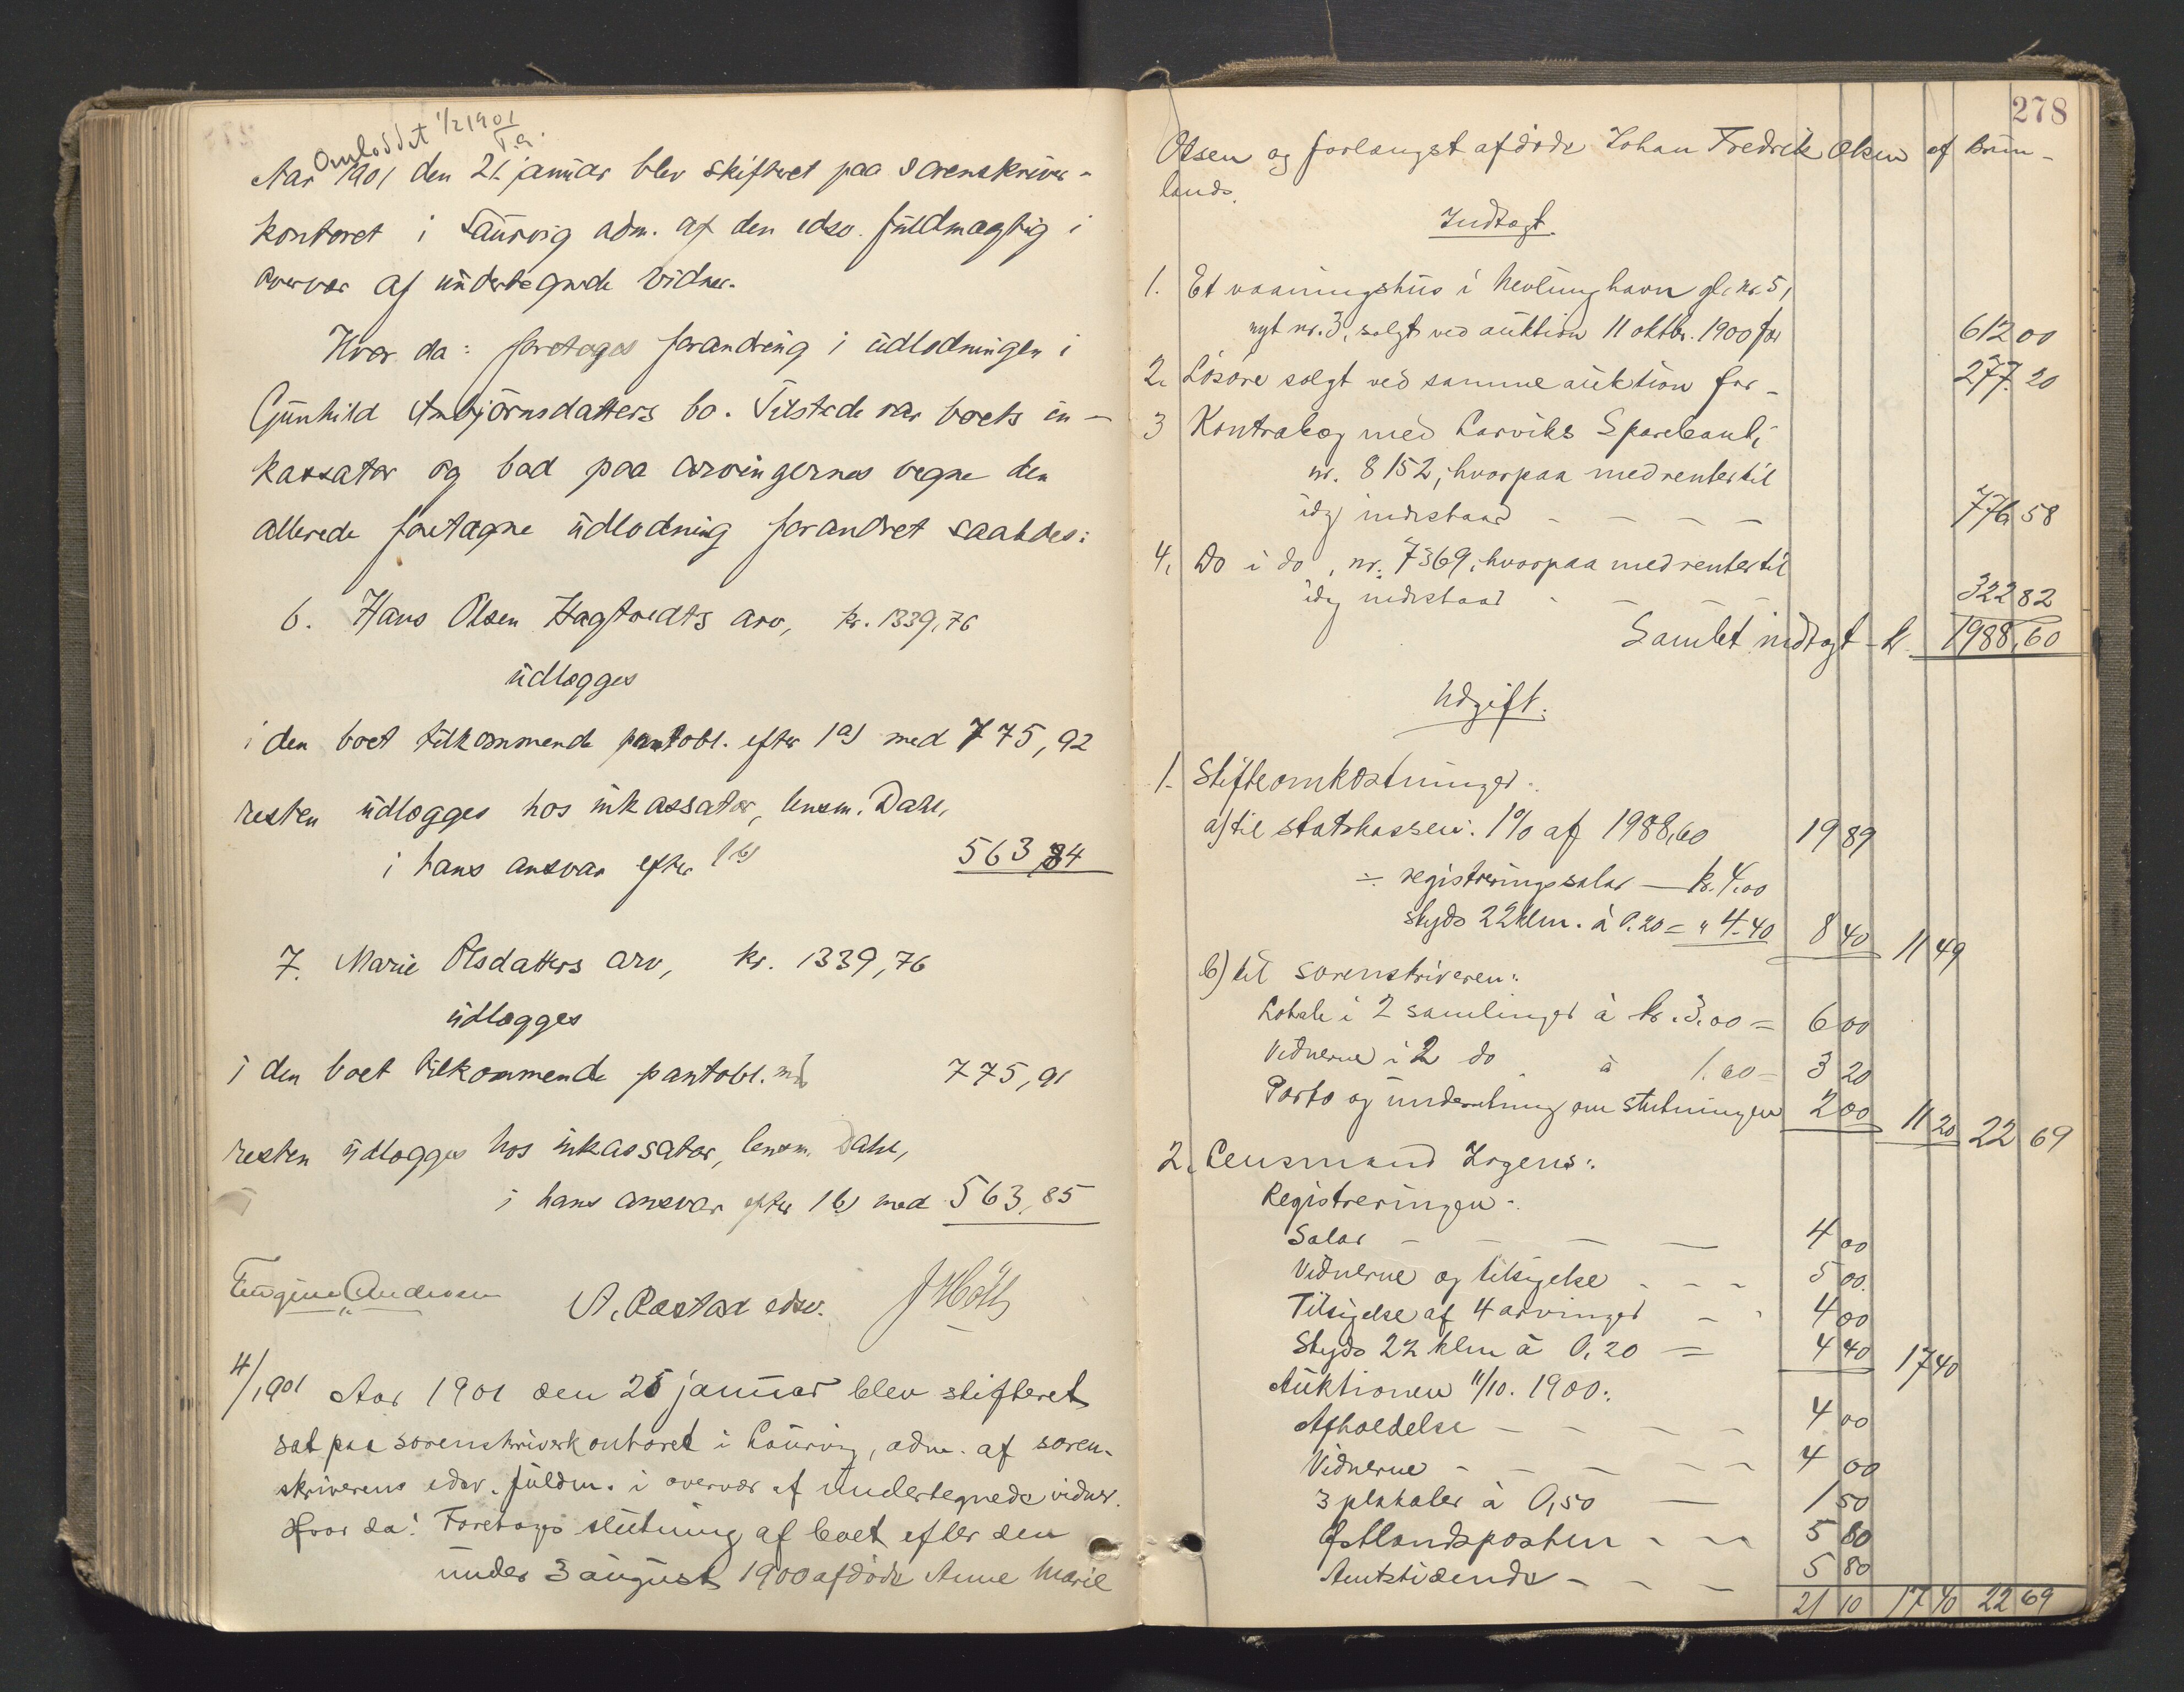 Omloddet 1/2 1901
Aar 1901 den 21 januar blev skifteret paa sorenskriver-
kontoret i Laurvig adm. af den edsv. fuldmægtig i
overvær af undertegnede vidner.
Hvor da: foretoges forandring i udlodningen i
Gunhild Anbjörnsdatters bo. Tilstede var boets in-
kassator og bad paa arvingernes vegne den
allerede foretagne udlodning forandret saaledes:
6. Hans Olsen Hagtvedts arv, kr. 1339,76
udlægges
i den boet tilkommende pantobl. efter 1a) med 775,92
resten udlægges hos inkassator, lensm. Dahl,
i hans ansvar efter 1b) 563,84
7. Marie Olsdatters arv, kr. 1339,76
udlægges
i den boet tilkommende pantobl. med 775,91
resten udlægges hos inkassator, lensm. Dahl,
i hans ansvar efter 1b) med 563,85
Eugine Andersen A. Rastad edsv. J Holtz
4/1901 Aar 1901 den 25 januar blev skifteret
sat paa sorenskriverkontoret i Laurvig, adm. af soren-
skriverens edsv. fuldm. i overvær af undertegnede vidner.
Hvor da: Foretoges slutning af boet efter den
under 3 august 1900 afdöde Anne Marie
278
Olsen og forlængst afdöde Johan Fredrik Olsen af Brun-
lands.
Indtægt.
1. Et vaaningshus i Nevlunghavn gl. nr. 5,
nyt nr. 3, solgt ved auktion 11 oktbr. 1900 for 612 00
2. Lösöre solgt ved samme auktion for - 277 20
3 Kontrabog med Larviks Sparebank,
nr. 8152, hvorpaa med renter til
idag indestaar - - - - 776 58
4. Do i do, nr. 7369, hvorpaa med renter til
idag indestaar - - - - 322 82
Samlet indtægt kr. 1988,60
Udgift.
1. Skifteomkostninger:
a) til statskassen: 1% af 1988,60 19 89
÷ registreringssalar — kr. 4.00
skyds 22 klm. à 0.20 = " 4.40 8 40 11 49
b) til sorenskriveren:
Lokale i 2 samlinger à kr. 3.00 = 6 00
Vidnerne i 2 do à 1.60 = 3 20
Porto og underretning om slutningen 2 00 11 20 22 69
2. Lensmand Zogens:
Registreringen:
Salar - - - — 4 00
Vidnerne og tilsigelse - - - 5 00.
Tilsigelse af 4 arvinger - - 4 00
Skyds 22 klm à 0,20 = 4 40 17 40
Auktionen 11/10. 1900:
Afholdelse - - - - - 4 00
Vidnerne - - - - - 4 00
3 plakater à 0,50 — 1 50
Østlandsposten - - - 5 80
Amtstidende - - - 5 80
21 10 17 40 22 69